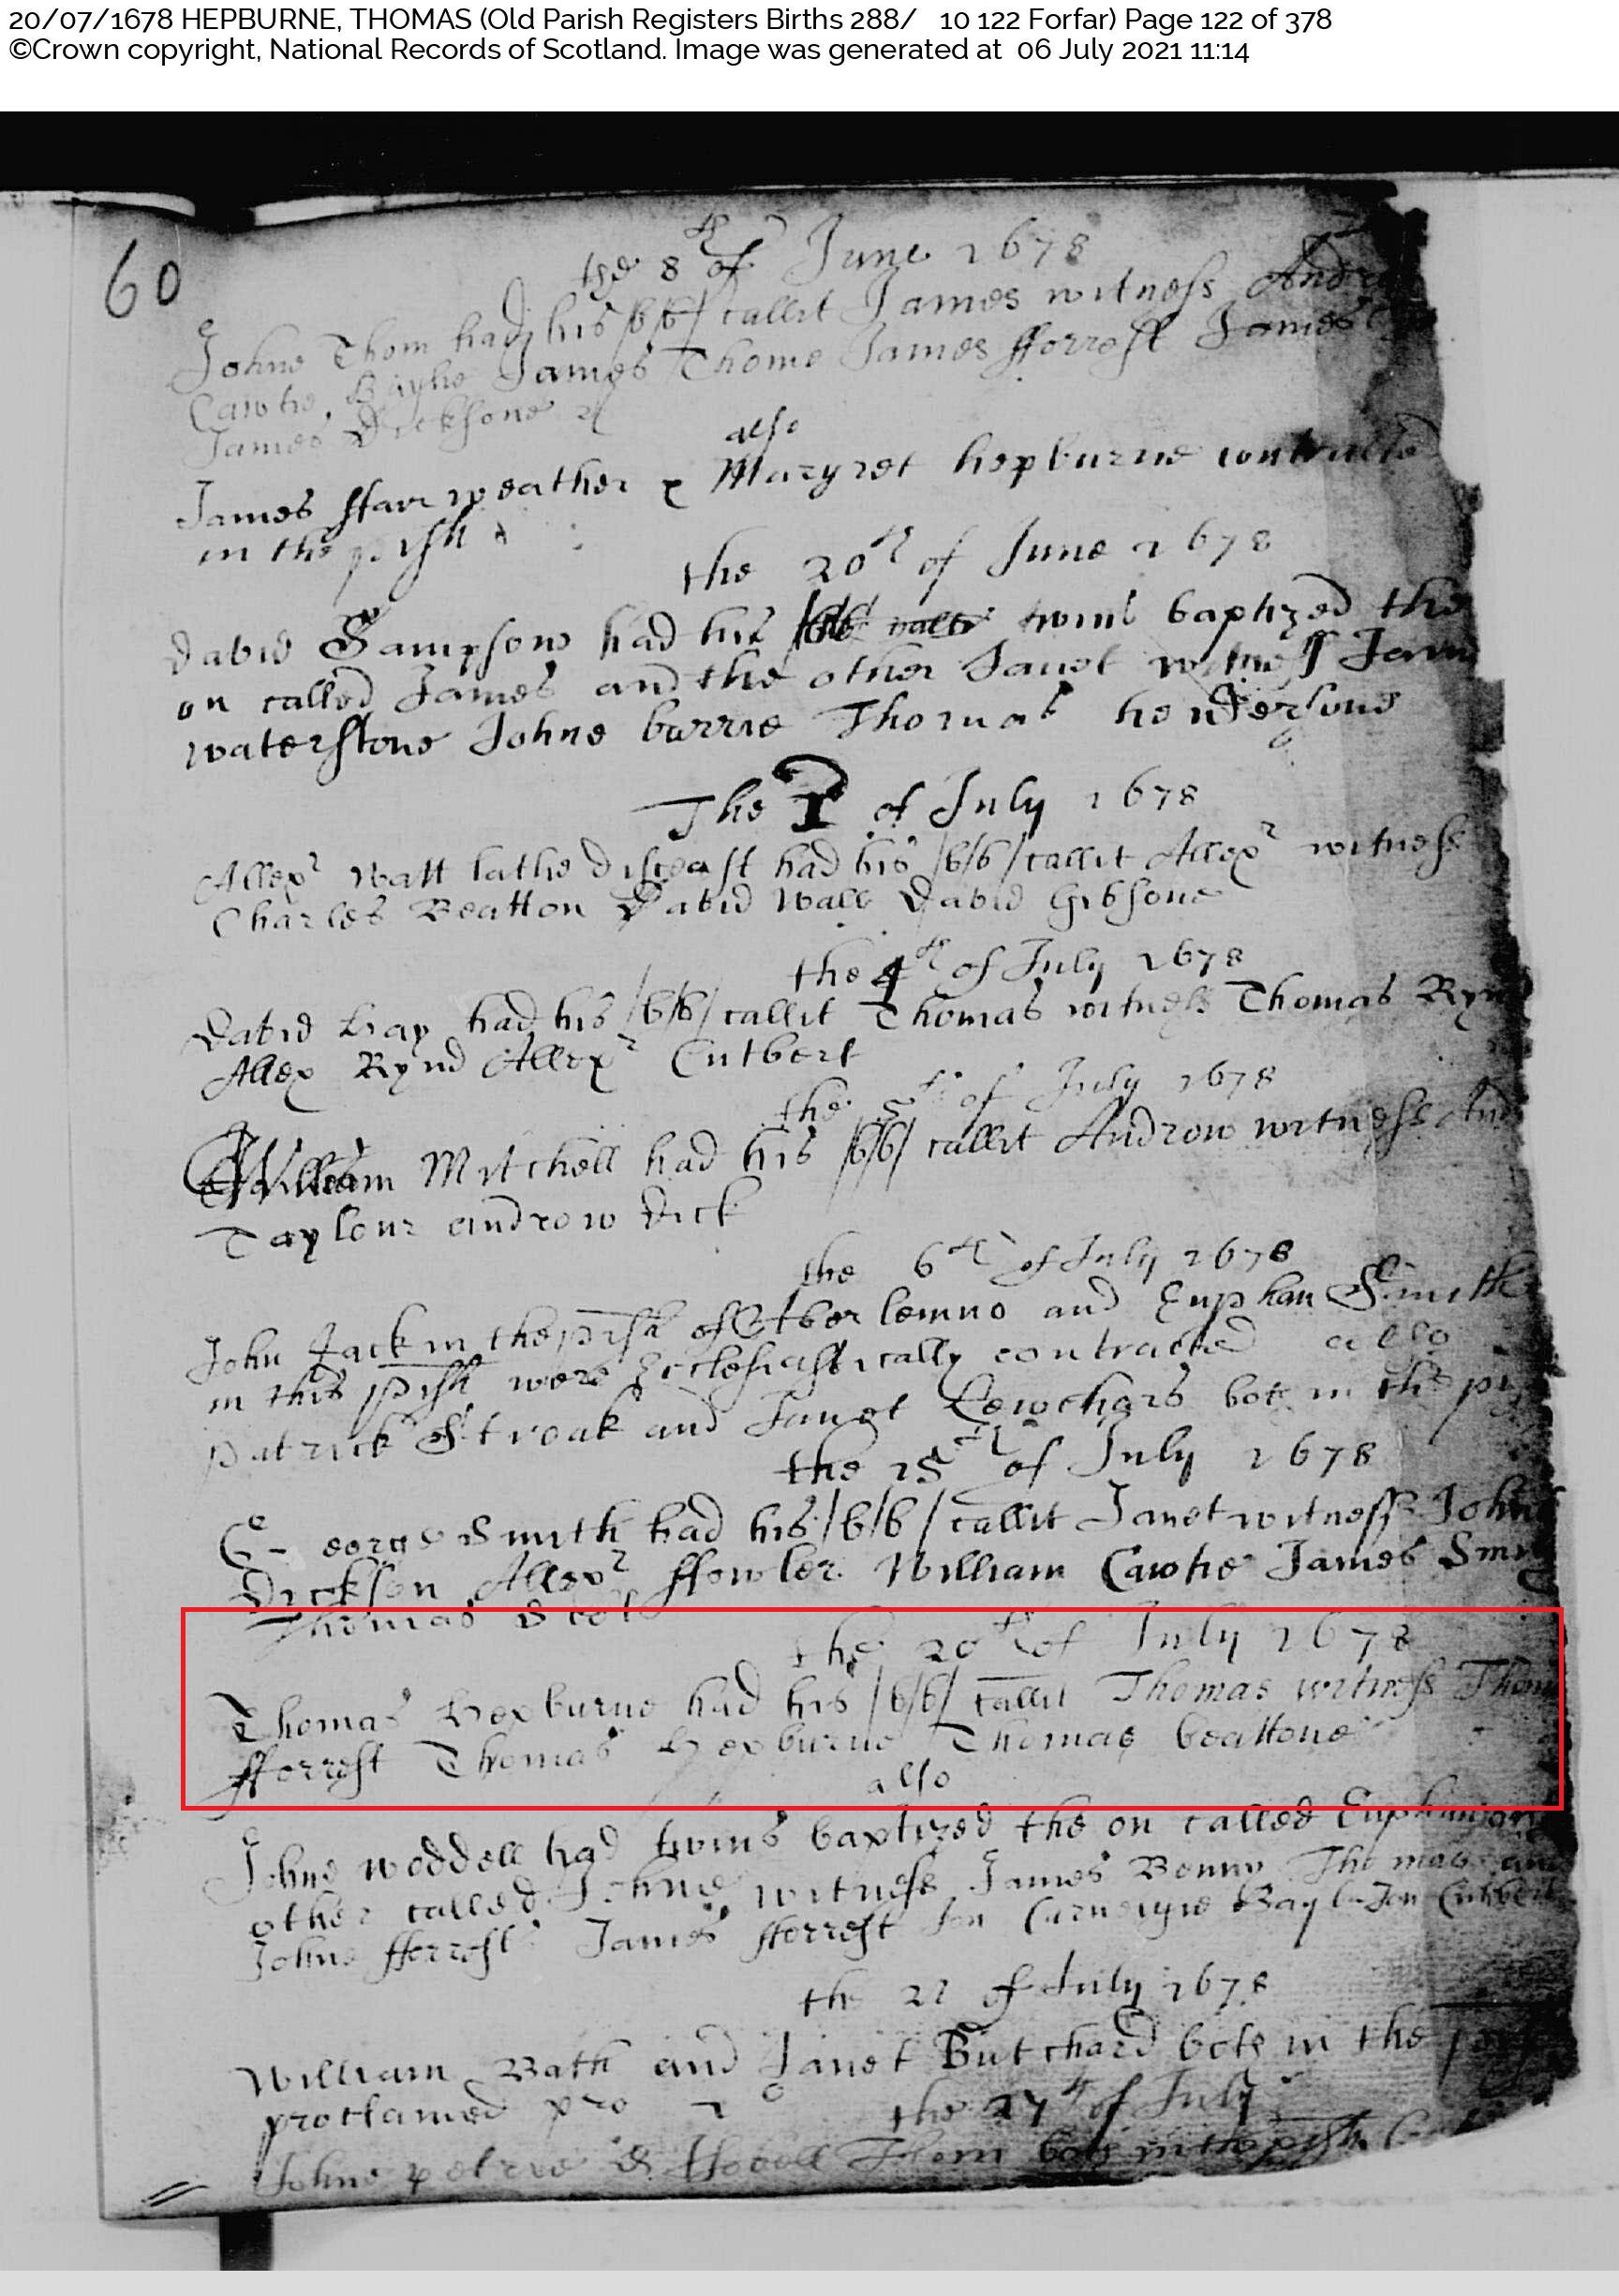 20/07/1678 HEPBURNE, THOMAS (Old Parish Registers Births 288/ 10 122 Forfar) Page 122 of 378
©Crown copyright, National Records of Scotland. Image was generated at 06 July 2021 11:14
60
the 8th of June 1678
Johne Thom had his /b/b/ callit James witness
Cawtie Baylie James Thome James fforrest James
James Dicksone
also
James ffairweather & Margret hepburne contracted
in the pish
the 20th of June 1678
David Sampsone had his twins baptized the
on called James and the other Janet witness
waterstone Johne barrie Thomas hendersone
The of July 1678
Allexr watt lathe diseast had his /b/b/ callit Allexr witness
Charles Beatton David wall David Gibsone
the 4th of July 1678
David hay had his /b/b/ callit Thomas witness Thomas
Allex Rynd Allexr Cutbert
the 5th of July 1678
William Mitchell had his /b/b/ callit Androw witness
Taylour androw dick
the 6th of July 1678
John Jack in the pish of Aberlemno and Euphan Smith
in this pish were Ecclesiastically contracted also
patrick Stroak and Janet Lewchars bote in the
the 15th of July 1678
George Smith had his /b/b/ callit Janet witness
Dickson Allexr ffowler William Cawtie James
Thomas Scot
the 20th of July 1678
Thomas Hepburne had his /b/b/ callit Thomas witness
fforrest Thomas Hepburne Thomas beattone
also
Johne weddell had twins baptized the on called
other called Johne witness James Thomas
Johne fforrest James fforrest
the of July 1678
William Bath and Janet Butchard bote in the
proclamed pro
the 27th of July
Johne Thom bote in the pish